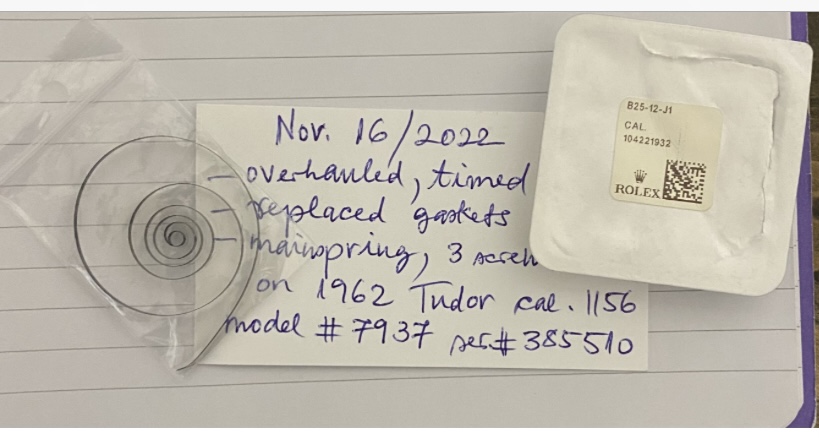 Nov. 16/2022
- overhauled, timed
- replaced gaskets
- mainspring, 3
on 1962 Tudor cal. 1156
model # 7937 ser.# 385510
B25-12-J1
CAL.
104221932
ROLEX